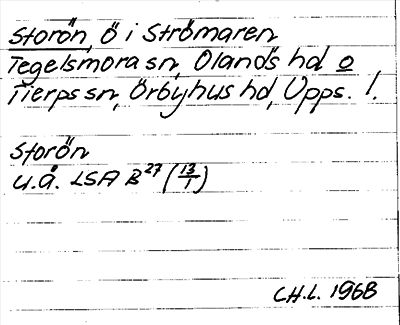 Storön, ö i Strömaren
Tegelsmora sn, Olands hd o
Tierps sn, Örbyhus hd, Upps. l.
Storön
u.å. LSA B27 (13/1)
C.H.L. 1968